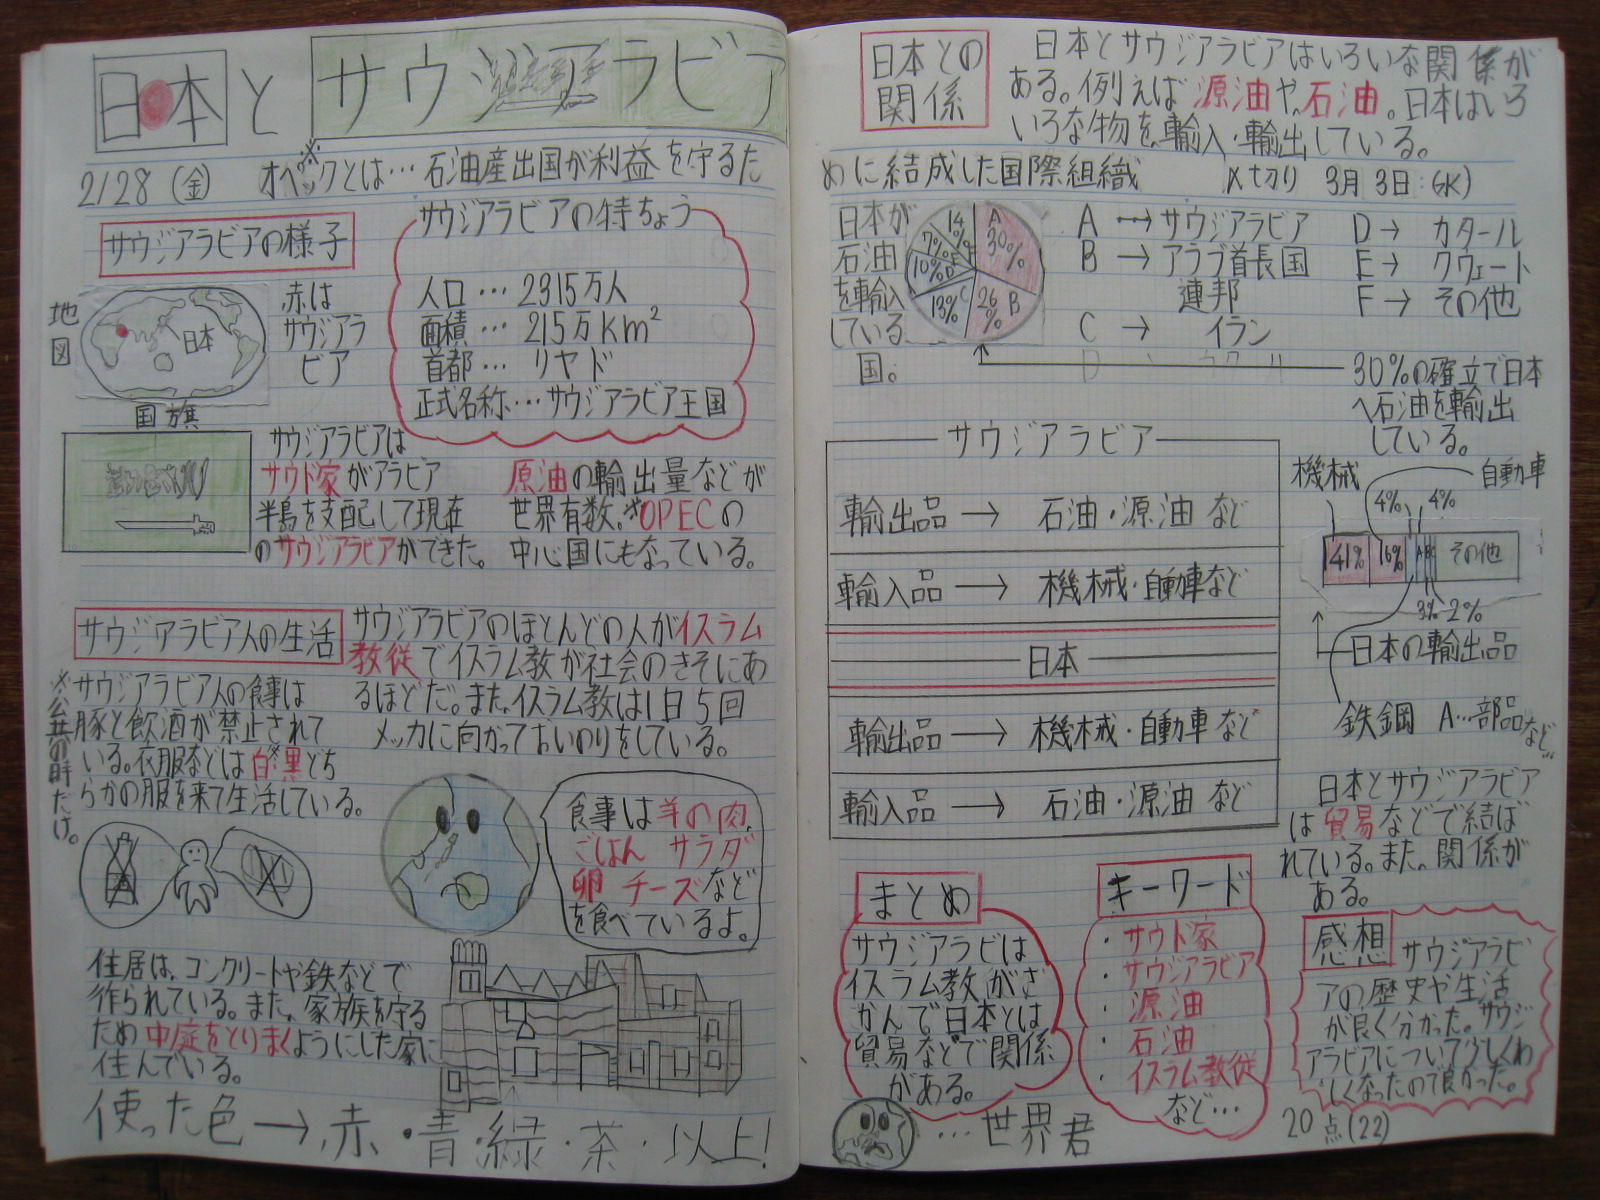 日本とサウジアラビア
2/28(金)
※オペックとは…石油産出国が利益を守るた
めに結成した国際組織
サウジアラビアの様子
地図
日本
赤は
サウジアラ
ビア
サウジアラビアの特ちょう
人口…2315万人
面積…215万km²
首都…リヤド
正式名称…サウジアラビア王国
国旗
サウジアラビアは
サウド家がアラビア
半島を支配して現在
のサウジアラビアができた。
原油の輸出量などが
世界有数。※OPECの
中心国にもなっている。
サウジアラビア人の生活
サウジアラビアのほとんどの人がイスラム
教徒でイスラム教が社会のきそにあ
るほどだ。また、イスラム教は1日5回
メッカに向かっておいのりをしている。
※公共の時だけ。
サウジアラビア人の食事は
豚と飲酒が禁止されて
いる。衣服などは白、黒どち
らかの服を来て生活している。
食事は羊の肉、
ごはん サラダ
卵 チーズなど
を食べているよ。
住居は、コンクリートや鉄などで
作られている。また、家族を守る
ため中庭をとりまくようにした家に
住んでいる。
使った色→赤・青・緑・茶・以上!
日本との
関係
日本とサウジアラビアはいろいな関係が
ある。例えば原油や、石油。日本はいろ
いろな物を、輸入・輸出している。
〆切り 3月3日:(GK)
日本が
石油
を輸入
している
国。
A 30%
26% B
13% C
10% D
7% E
14% F
A→サウジアラビア
B→アラブ首長国
連邦
C→イラン
D→カタール
E→クウェート
F→その他
30%の確立で日本
へ石油を輸出
している。
サウジアラビア
輸出品→石油・源油など
輸入品→機械・自動車など
日本
輸出品→機械・自動車など
輸入品→石油・源油など
機械
自動車
4% 4%
41% 16% A B C その他
3% 2%
日本の輸出品
鉄鋼 A…部品など…
日本とサウジアラビア
は貿易などで結ば
れている。また、関係が
ある。
まとめ
サウジアラビは
イスラム教がさ
かんで日本とは
貿易などで関係
がある。
キーワード
・サウド家
・サウジアラビア
・源油
・石油
・イスラム教徒
など…
感想
サウジアラビ
アの歴史や生活
が良く分かった。サウジ
アラビアについて少しくわ
しくなったので良かった。
…世界君
20点(22)